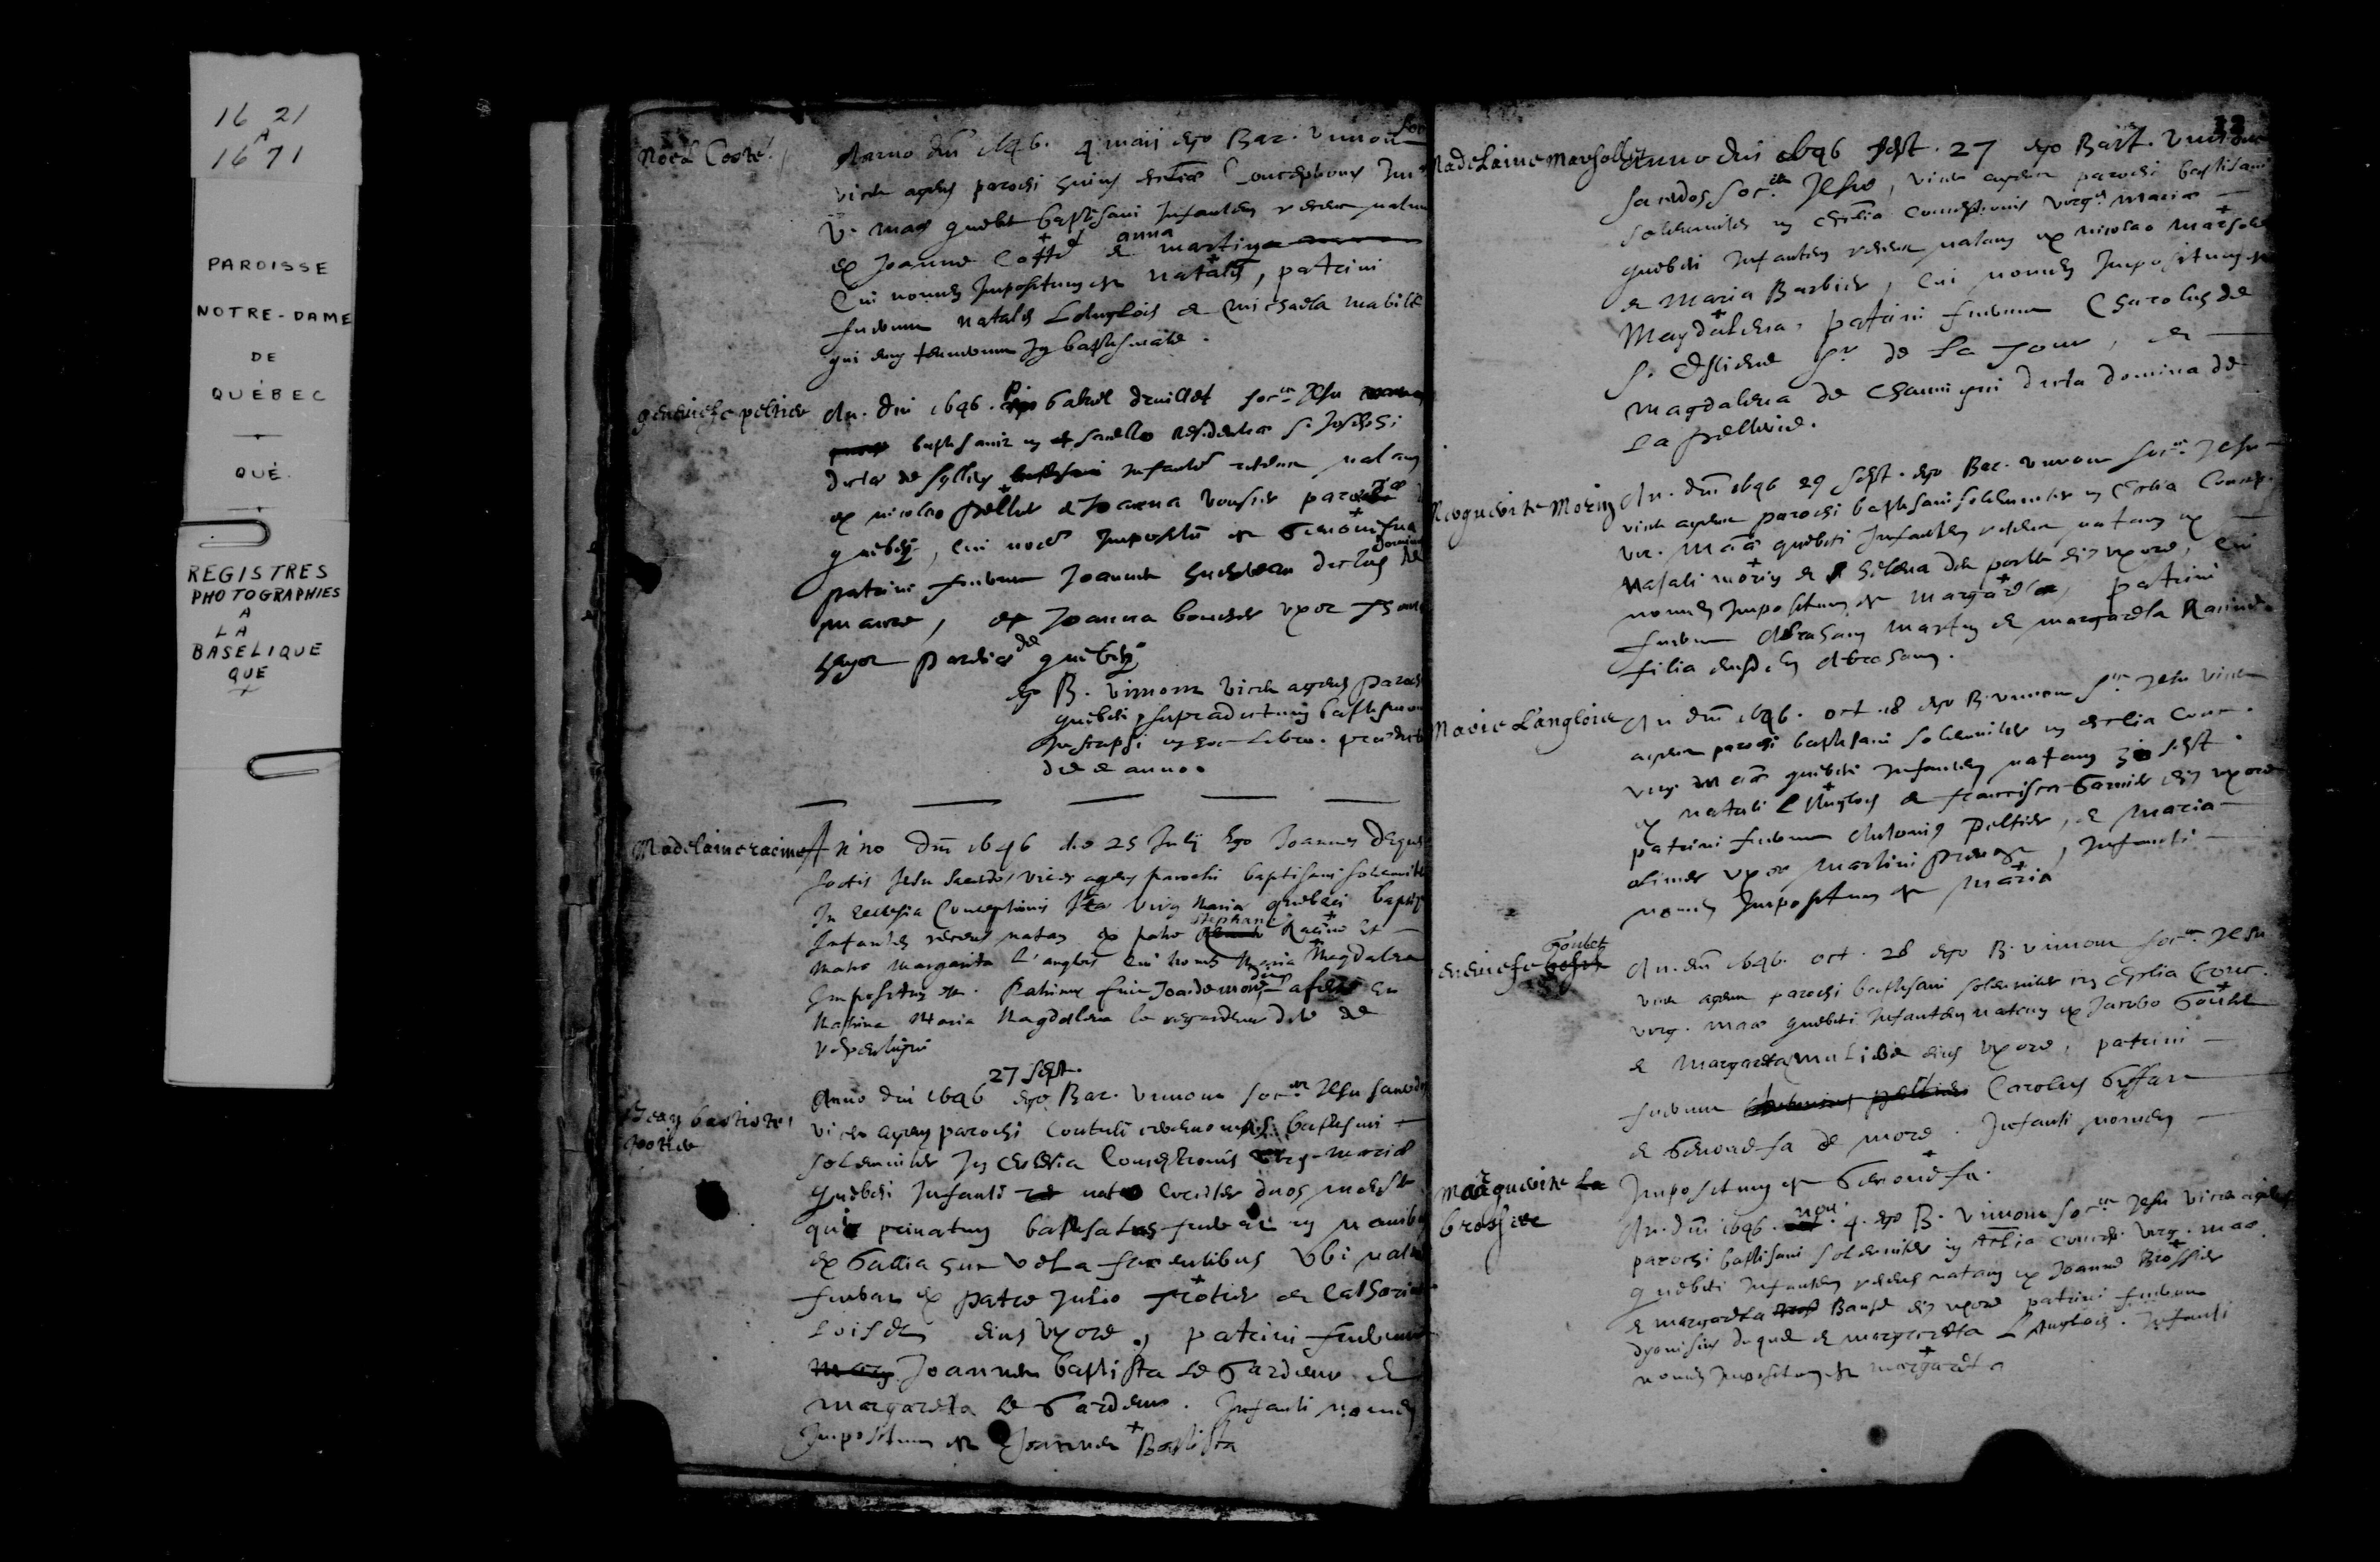 16 21
A
16 71
PAROISSE
NOTRE-DAME
DE
QUÉBEC
QUÉ.
REGISTRES
PHOTOGRAPHIES
A
LA
BASELIQUE
QUE
Noel Cotté
Anno dni 1646. 4 maii ego Bar. vimont soc
vices agens parochi huius ecclíae Conceptionis
V. mae quebci baptisavi Infantem recens natum
ex Joanne Cotté et anna martin
Cui nomen Impositum est natalis, patrini
fuerunt natalis Langlois et Michaela mabille
qui eum tenuerunt In baptismate.
geneviefe peltier
An. dni 1646. P. Gabriel druilletes soc Jesu
baptisavit in sacello Residentiae S. Josephi
dictae de syllery Infantem recens natam
ex nicolao pelletier et Joanna parochiae
quebci, cui nomen Impositum est Genovefa
patrini fuerunt Joannes dictus dominus de
, et Joanna boucher uxor
de quebec
ego B. vimont vices agens parochi
quebci supradictum baptismum
Inscripsi in hoc libro. praedict
die et anno.
Madelaine racine
Anno Dni 1646 die 25 Julij Ego Joannes Dequen
Soctis Jesu Sacerdos vices agens parochi baptisavi solemniter
In Ecclesia Conceptionis Virg Maria quebeci
Infantem recens natam ex patre Stephano Racine et
Matre Margarita L'anglois cui nomen Maria Magdalena
Impositum est. Patrinus fuit
Matrina Maria Magdalena
repentigni
Jean baptiste
potier
27 Sept.
Anno dni 1646 ego Bar. vimont soc Jesu sacerdos
vices agens parochi Contuli ceremonias baptismi
solemniter In ecclesia Conceptionis virg. mariae
quebeci Infanti nato circiter duos menses
qui privatim baptisatus fuerat in navibus
ex Gallia huc vela facientibus Ubi natus
fuerat ex patre Julio potier et Catharina
eius uxore, patrini fuerunt
Joannes baptista le Gardeur et
margareta le Gardeur. Infanti nomen
Impositum est Joannes Baptista
Madelaine Marsollet
Anno dni 1646 sept. 27 ego Bart. vimont
sacerdos soc Jesu, vices agens parochi baptisavi
solemniter in ecclia Conceptionis virgis Mariae
quebeci Infantem recens natam ex nicolao Marsolet
et Maria Barbier, Cui nomen Impositum est
Magdalena. patrini fuerunt Charolus de
S. Estiene Sr de La Tour, et
magdalena de Chavigni dicta domina de
La peltrie.
Marguerite Morin
An. dni 1646 29 sept. ego Bar. vimont soc Jesu
vices agens parochi baptisavi solemniter in ecclia Concep.
vir. Mae quebeci Infantem recens natam ex
Natali morin et helena des portes eius uxore, cui
nomen Impositum est Margareta, patrini
fuerunt Abraham Martin et margareta
filia eiusdem Abraham.
Marie L'anglois
An dni 1646. oct. 18 ego B. vimont S. Jesu vices
agens parochi baptisavi solemniter in ecclia Conc.
virg. Mae quebeci Infantem natam 30 sept.
ex natali L'Anglois et francisca Garnier eius uxore
patrini fuerunt Antonius Peltier, et Maria
olivier uxor Martini prevost, Infanti
nomen Impositum est Maria
geneviefe Goubet
An. dni 1646. oct. 28 ego B. vimont soc Jesu
vices agens parochi baptisavi solemniter in ecclia Conc.
virg. Mae quebeci Infantem natam ex Jacobo
et Margareta eius uxore, patrini
fuerunt Carolus Giffart
et Genovefa de more. Infanti nomen
Impositum est Genovefa.
Marguerite La
brossiere
An. dni 1646. nov. 4. ego B. vimont soc Jesu vices agens
parochi baptisavi solemniter in ecclia Concep. virg. mae
quebeci Infantem recens natam ex Joanne Brossier
et margareta eius uxore patrini fuerunt
dyonisius duquet et margareta L'Anglois. Infanti
nomen Impositum est margareta